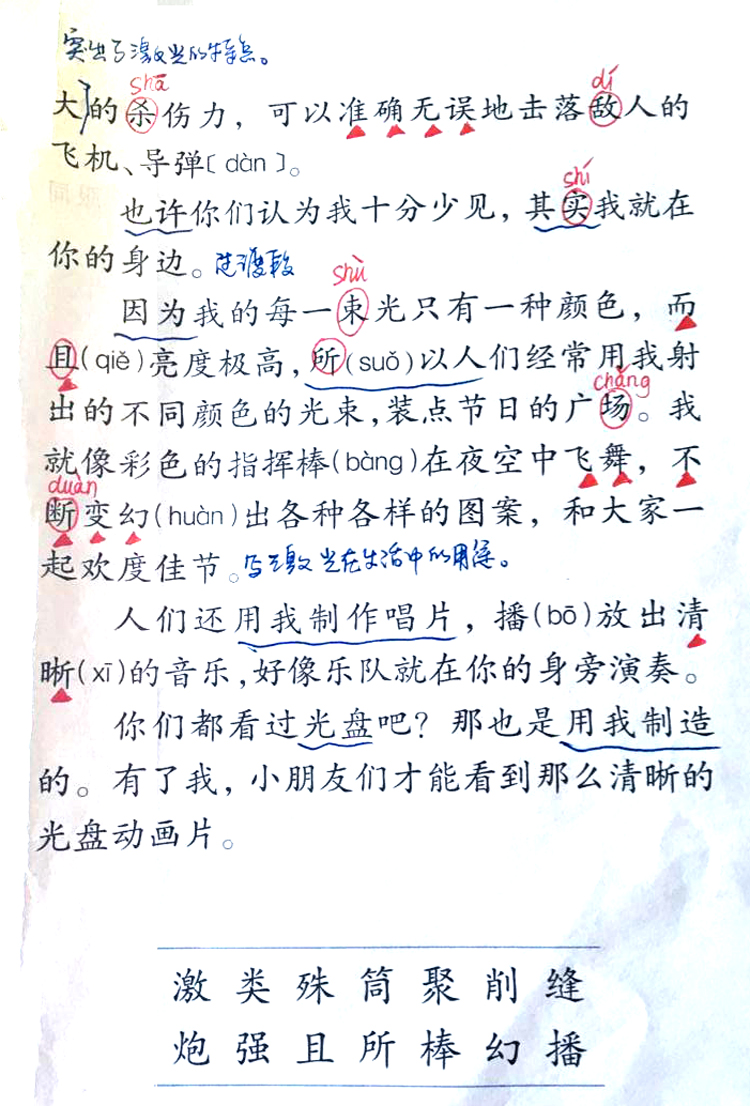 突出了激光的特点。
shā dí
大的杀伤力，可以准确无误地击落敌人的
飞机、导弹〔dàn〕。
shí
也许你们认为我十分少见，其实我就在
你的身边。过渡段
shù
因为我的每一束光只有一种颜色，而
且(qiě)亮度极高，所(suǒ)以人们经常用我射
chǎng
出的不同颜色的光束，装点节日的广场。我
就像彩色的指挥棒(bàng)在夜空中飞舞，不
duàn
断变幻(huàn)出各种各样的图案，和大家一
起欢度佳节。写激光在生活中的用途。
人们还用我制作唱片，播(bō)放出清
晰(xī)的音乐，好像乐队就在你的身旁演奏。
你们都看过光盘吧？那也是用我制造
的。有了我，小朋友们才能看到那么清晰的
光盘动画片。
激 类 殊 筒 聚 削 缝
炮 强 且 所 棒 幻 播